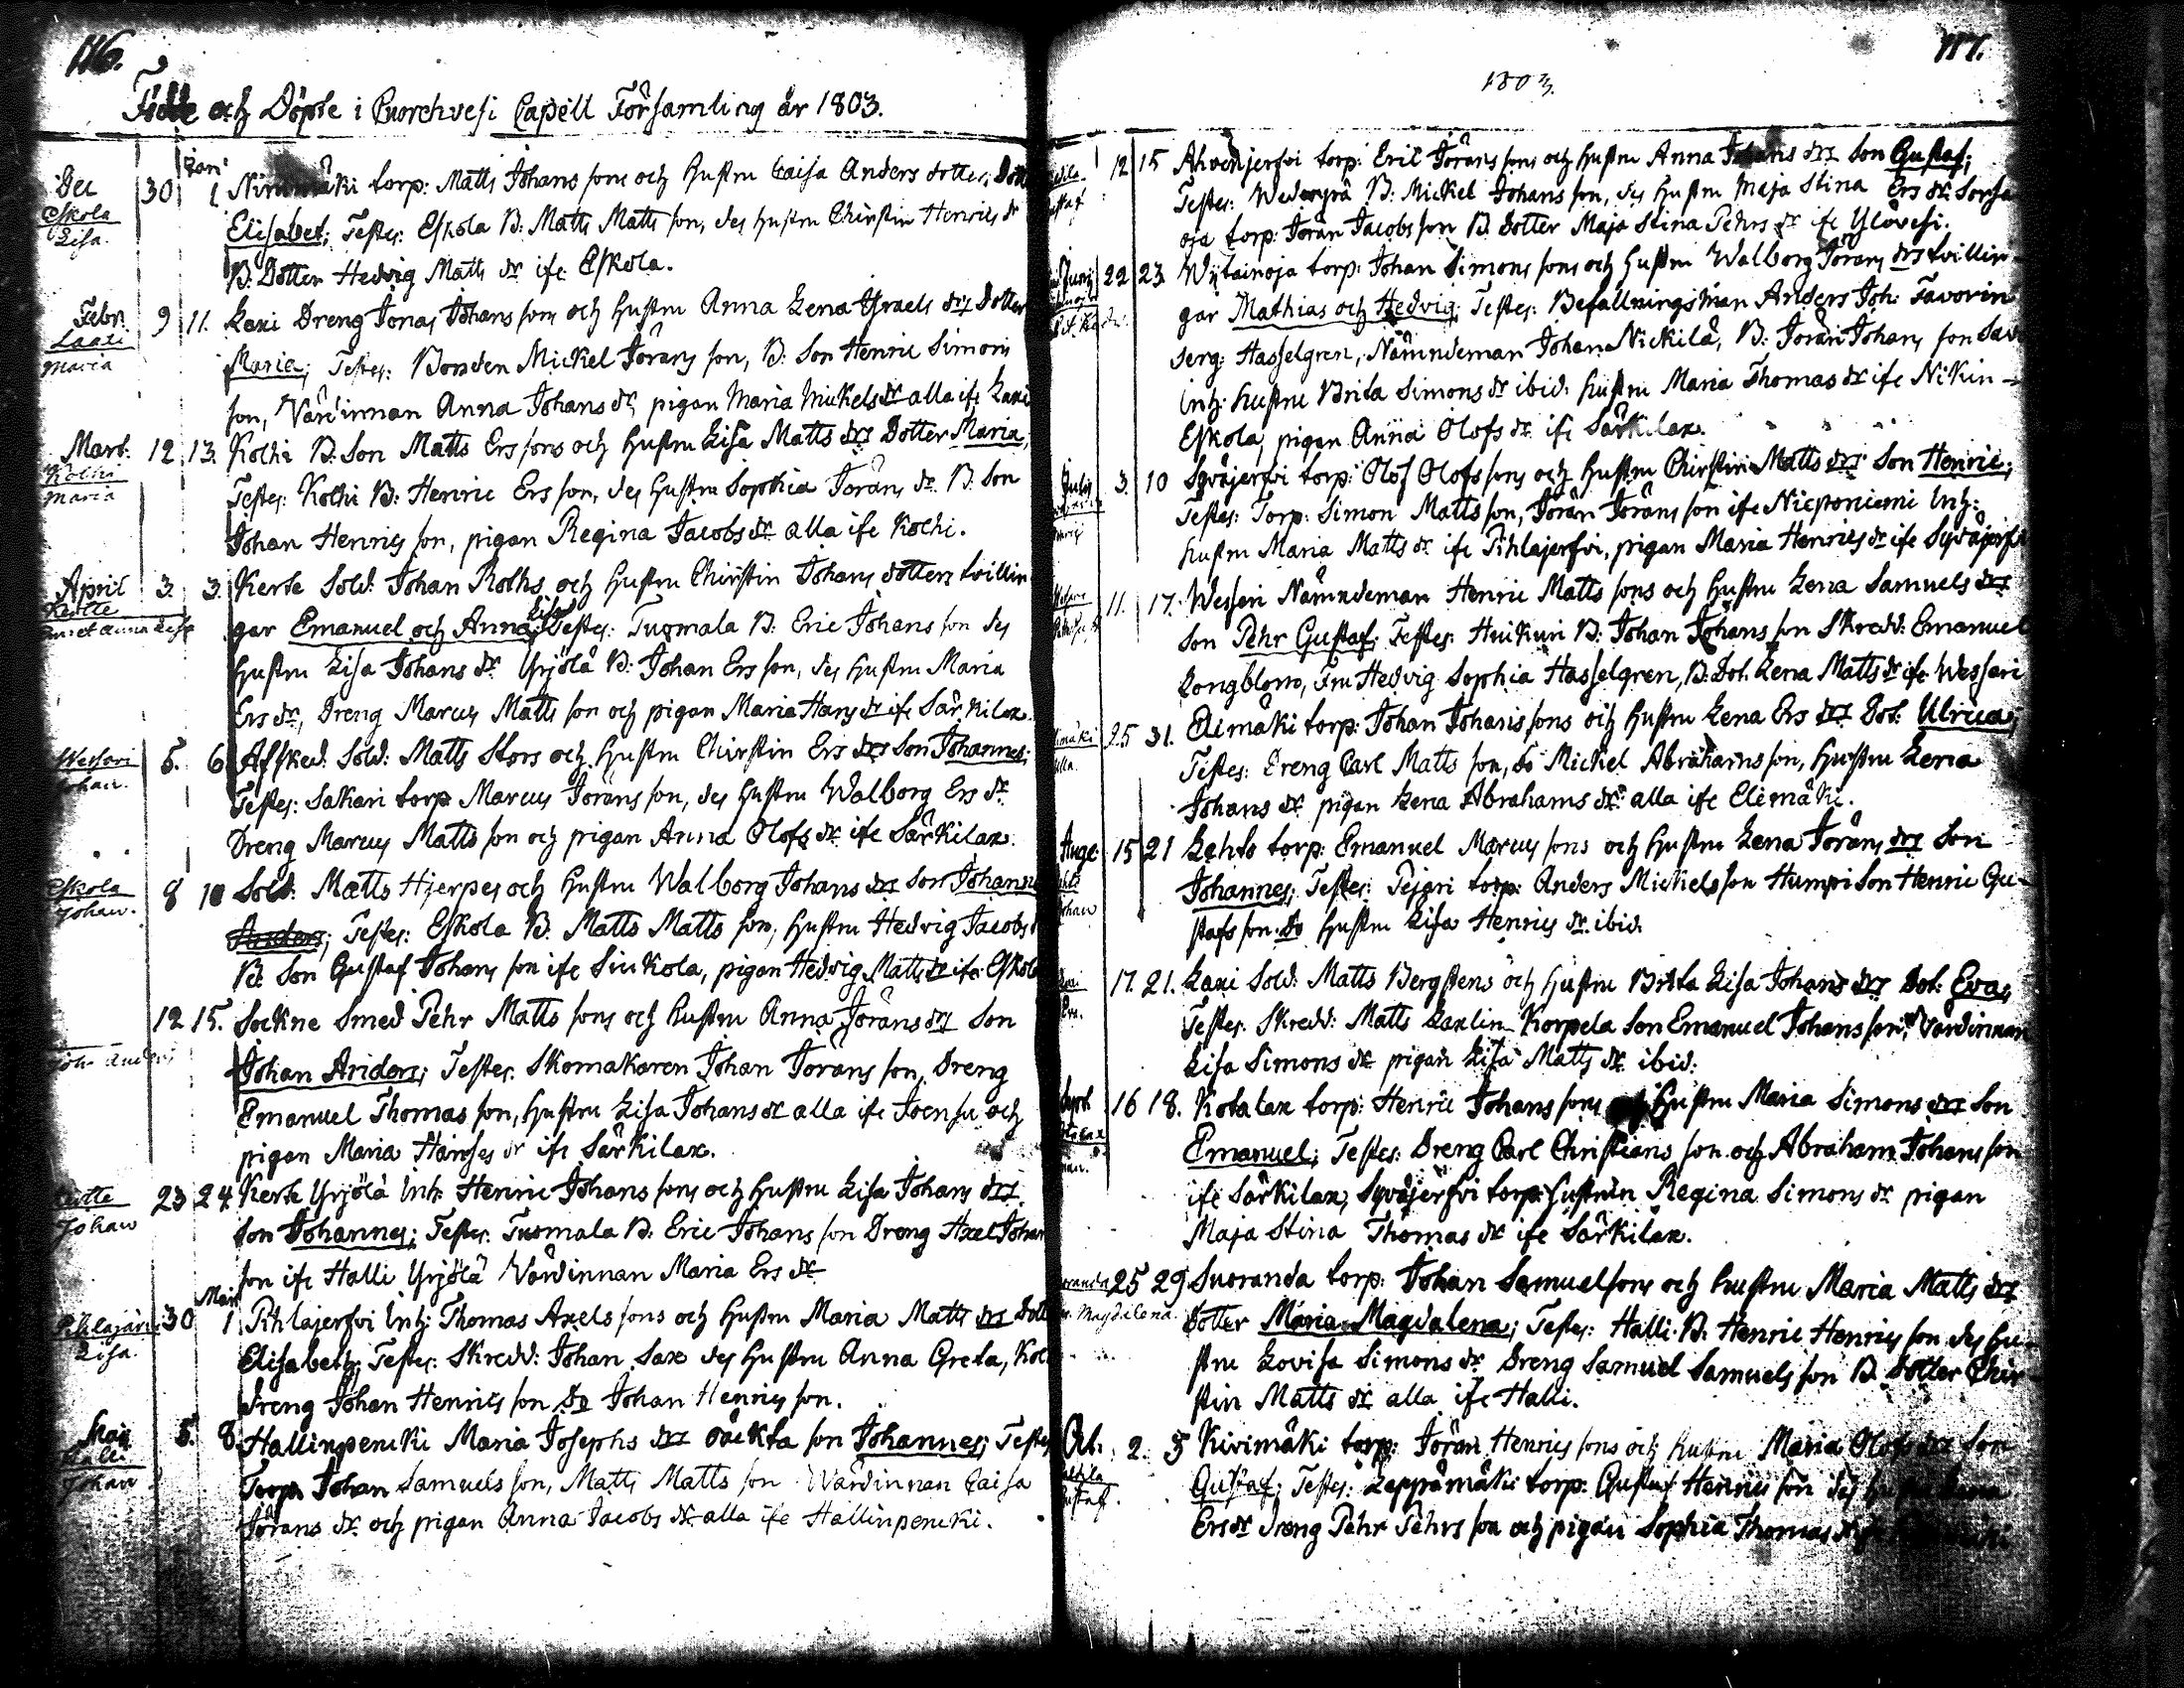 116.
Födde och Döpte i Cuorehvesi Capell Församling år 1803.
Dec 30 Jan 1 Niromäki torp: Matts Johans sons och hustru Caisa Anders dotter; Dott
Eskola Lisa. Elisabet; Testes: Eskola B: Matts Matts son, des hustru Chirstin Henrics dr
B: Dotter Hedvig Matts dr ifr Eskola.
Febr. 9 11. Laxi Dreng Jonas Johans sons och hustru Anna Lena Israels drs Dotter
Laaxi Maria Maria; Testes: Bonden Mickel Jörans son, B: Son Henric Simons
son, Värdinnan Anna Johans dr, pigan Maria Mickels dr alla ifr Laxi
Mart. 12 13. Kolhi B: Son Matts Ers sons och hustru Lisa Matts drs Dotter Maria,
Kolhi Maria Testes: Kolhi B: Henric Ers son, des hustru Sophia Jörans dr B: Son
Johan Henrics son, pigan Regina Jacobs dr alla ifr Kolhi.
April 3. 3. Kerte Sold: Johan Roths och hustru Chirstin Johans dotters tvillin
Kertte Em: et Anna Lisa gar Emanuel och Anna Lisa; Testes: Tuomala B: Eric Johans son des
hustru Lisa Johans dr Yrjölä B: Johan Ers son, des hustru Maria
Ers dr, Dreng Marcus Matts son och pigan Maria Hans dr ifr Särkilax.
Wessari Johan. 5. 6. Afsked: Sold: Matts Stors och hustru Chirstin Ers drs Son Johannes;
Testes: Sakari torp Marcus Jörans son, des hustru Walborg Ers dr
Dreng Marcus Matts son och pigan Anna Olofs dr ifr Särkilax.
Eskola Johan. 8 10 Sold: Matts Hjerpes och hustru Walborg Johans drs Son Johannes
Anders; Testes: Eskola B: Matts Matts son, hustru Hedvig Jacobs
B: Son Gustaf Johans son ifr Siukola, pigan Hedvig Matts dr ifr Eskola
12 15. Sockne Smed Pehr Matts sons och hustru Anna Jörans drs Son
Joh. Anders Johan Anders; Testes: Skomakaren Johan Jörans son, Dreng
Emanuel Thomas son, hustru Lisa Johans dr alla ifr Joensu och
pigan Maria Hanses dr ifr Särkilax.
Kertte Johan 23 24 Kerte Yrjölä Inh: Henric Johans sons och hustru Lisa Johans drs
Son Johannes; Testes: Tuomala B: Eric Johans son Dreng Axel Johan
son ifr Halli Yrjölä Värdinnan Maria Ers dr
Pihlajärvi Lisa. 30 Maii 1 Pihlajerfvi Inh: Thomas Axels sons och hustru Maria Matts drs Dott
Elisabeth; Testes: Skredd: Johan Sax des hustru Anna Greta, Kol
Dreng Johan Henrics son Do Johan Henrics son.
Maij 5. 8. Hallinpenckki Maria Josephs drs oäckta son Johannes; Testes
Halli Johan Torp: Johan Samuels son, Matts Matts son Wärdinnan Caisa
Jörans dr och pigan Anna Jacobs dr alla ifr Hallinpencki.
117.
1803.
12 15 Ahvenjerfvi torp: Eric Jörans sons och hustru Anna Johans drs Son Gustaf;
Testes: B: Mickel Johans son, des hustru Maja Stina Ers dr Sorsa
oja torp: Jöran Jacobs son B: Dotter Maja Stina Pehrs dr ifr Ylövesi.
Junij 22 23 Wijtainoja torp: Johan Simons sons och hustru Walborg Jörans drs tvillin-
gar Mathias och Hedvig; Testes: Befallningsman Anders Joh: Favorin
Serg: Hasselgren, Nämndeman Johan Nickilä, B: Jöran Johans son Sav
Inh: hustru Brita Simons dr ibid: hustru Maria Thomas dr ifr Nikin-
Eskola, pigan Anna Olofs dr ifr Särkilax.
Julij 3. 10 Syväjerfvi torp: Olof Olofs sons och hustru Chirstin Matts drs Son Henric;
Testes: Torp: Simon Matts son, Jöran Jörans son ifr Nieponiemi Inh:
hustru Maria Matts dr ifr Pihlajerfvi, pigan Maria Henrics dr ifr Syväjerfv
11. 17. Wesseri Nämndeman Henric Matts sons och hustru Lena Samuels drs
Son Pehr Gustaf; Testes: Huikuri B: Johan Johans son Skredd: Emanuel
Longblom, Fru Hedvig Sophia Hasselgren, B: Dot. Lena Matts dr ifr Wessari
25 31. Elimäki torp: Johan Johans sons och hustru Lena Ers drs Dot: Ulrica;
Testes: Dreng Carl Matts son, Do Mickel Abrahams son, hustru Lena
Johans dr pigan Lena Abrahams dr alla ifr Elimäki.
Aug: 15 21 Lehto torp: Emanuel Marcus sons och hustru Lena Jörans drs Son
Johan Johannes; Testes: Pejari torp: Anders Mickels son Humpi Son Henric Gu-
stafs son Do hustru Lisa Henrics dr ibid.
Laxi Eva. 17. 21. Laxi Sold: Matts Bergstens och hustru Brita Lisa Johans drs Dot: Eva;
Testes: Skredd: Matts Laxlin Korpela Son Emanuel Johans son, Värdinnan
Lisa Simons dr pigan Lisa Matts dr ibid:
Sept. 16 18. Kotalax torp: Henric Johans sons och hustru Maria Simons drs Son
Emanuel; Testes: Dreng Carl Christians son och Abraham Johans son
ifr Särkilax, Syväjerfvi torp: hustrun Regina Simons dr pigan
Maja Stina Thomas dr ifr Särkilax.
25 29 Suoranda torp: Johan Samuelsons och hustru Maria Matts drs
Magdalena. Dotter Maria Magdalena; Testes: Halli B: Henric Henrics son des hu-
stru Lovisa Simons dr Dreng Samuel Samuels son B: Dotter Chir-
stin Matts dr alla ifr Halli.
Oct. 2. 3 Kivimäki torp: Jöran Henrics sons och hustru Maria Olofs drs Son
Gustaf. Gustaf; Testes: Leppämäki torp: Gustaf Henrics son des hustru
Ers dr Dreng Pehr Pehrs son och pigan Sophia Thomas dr